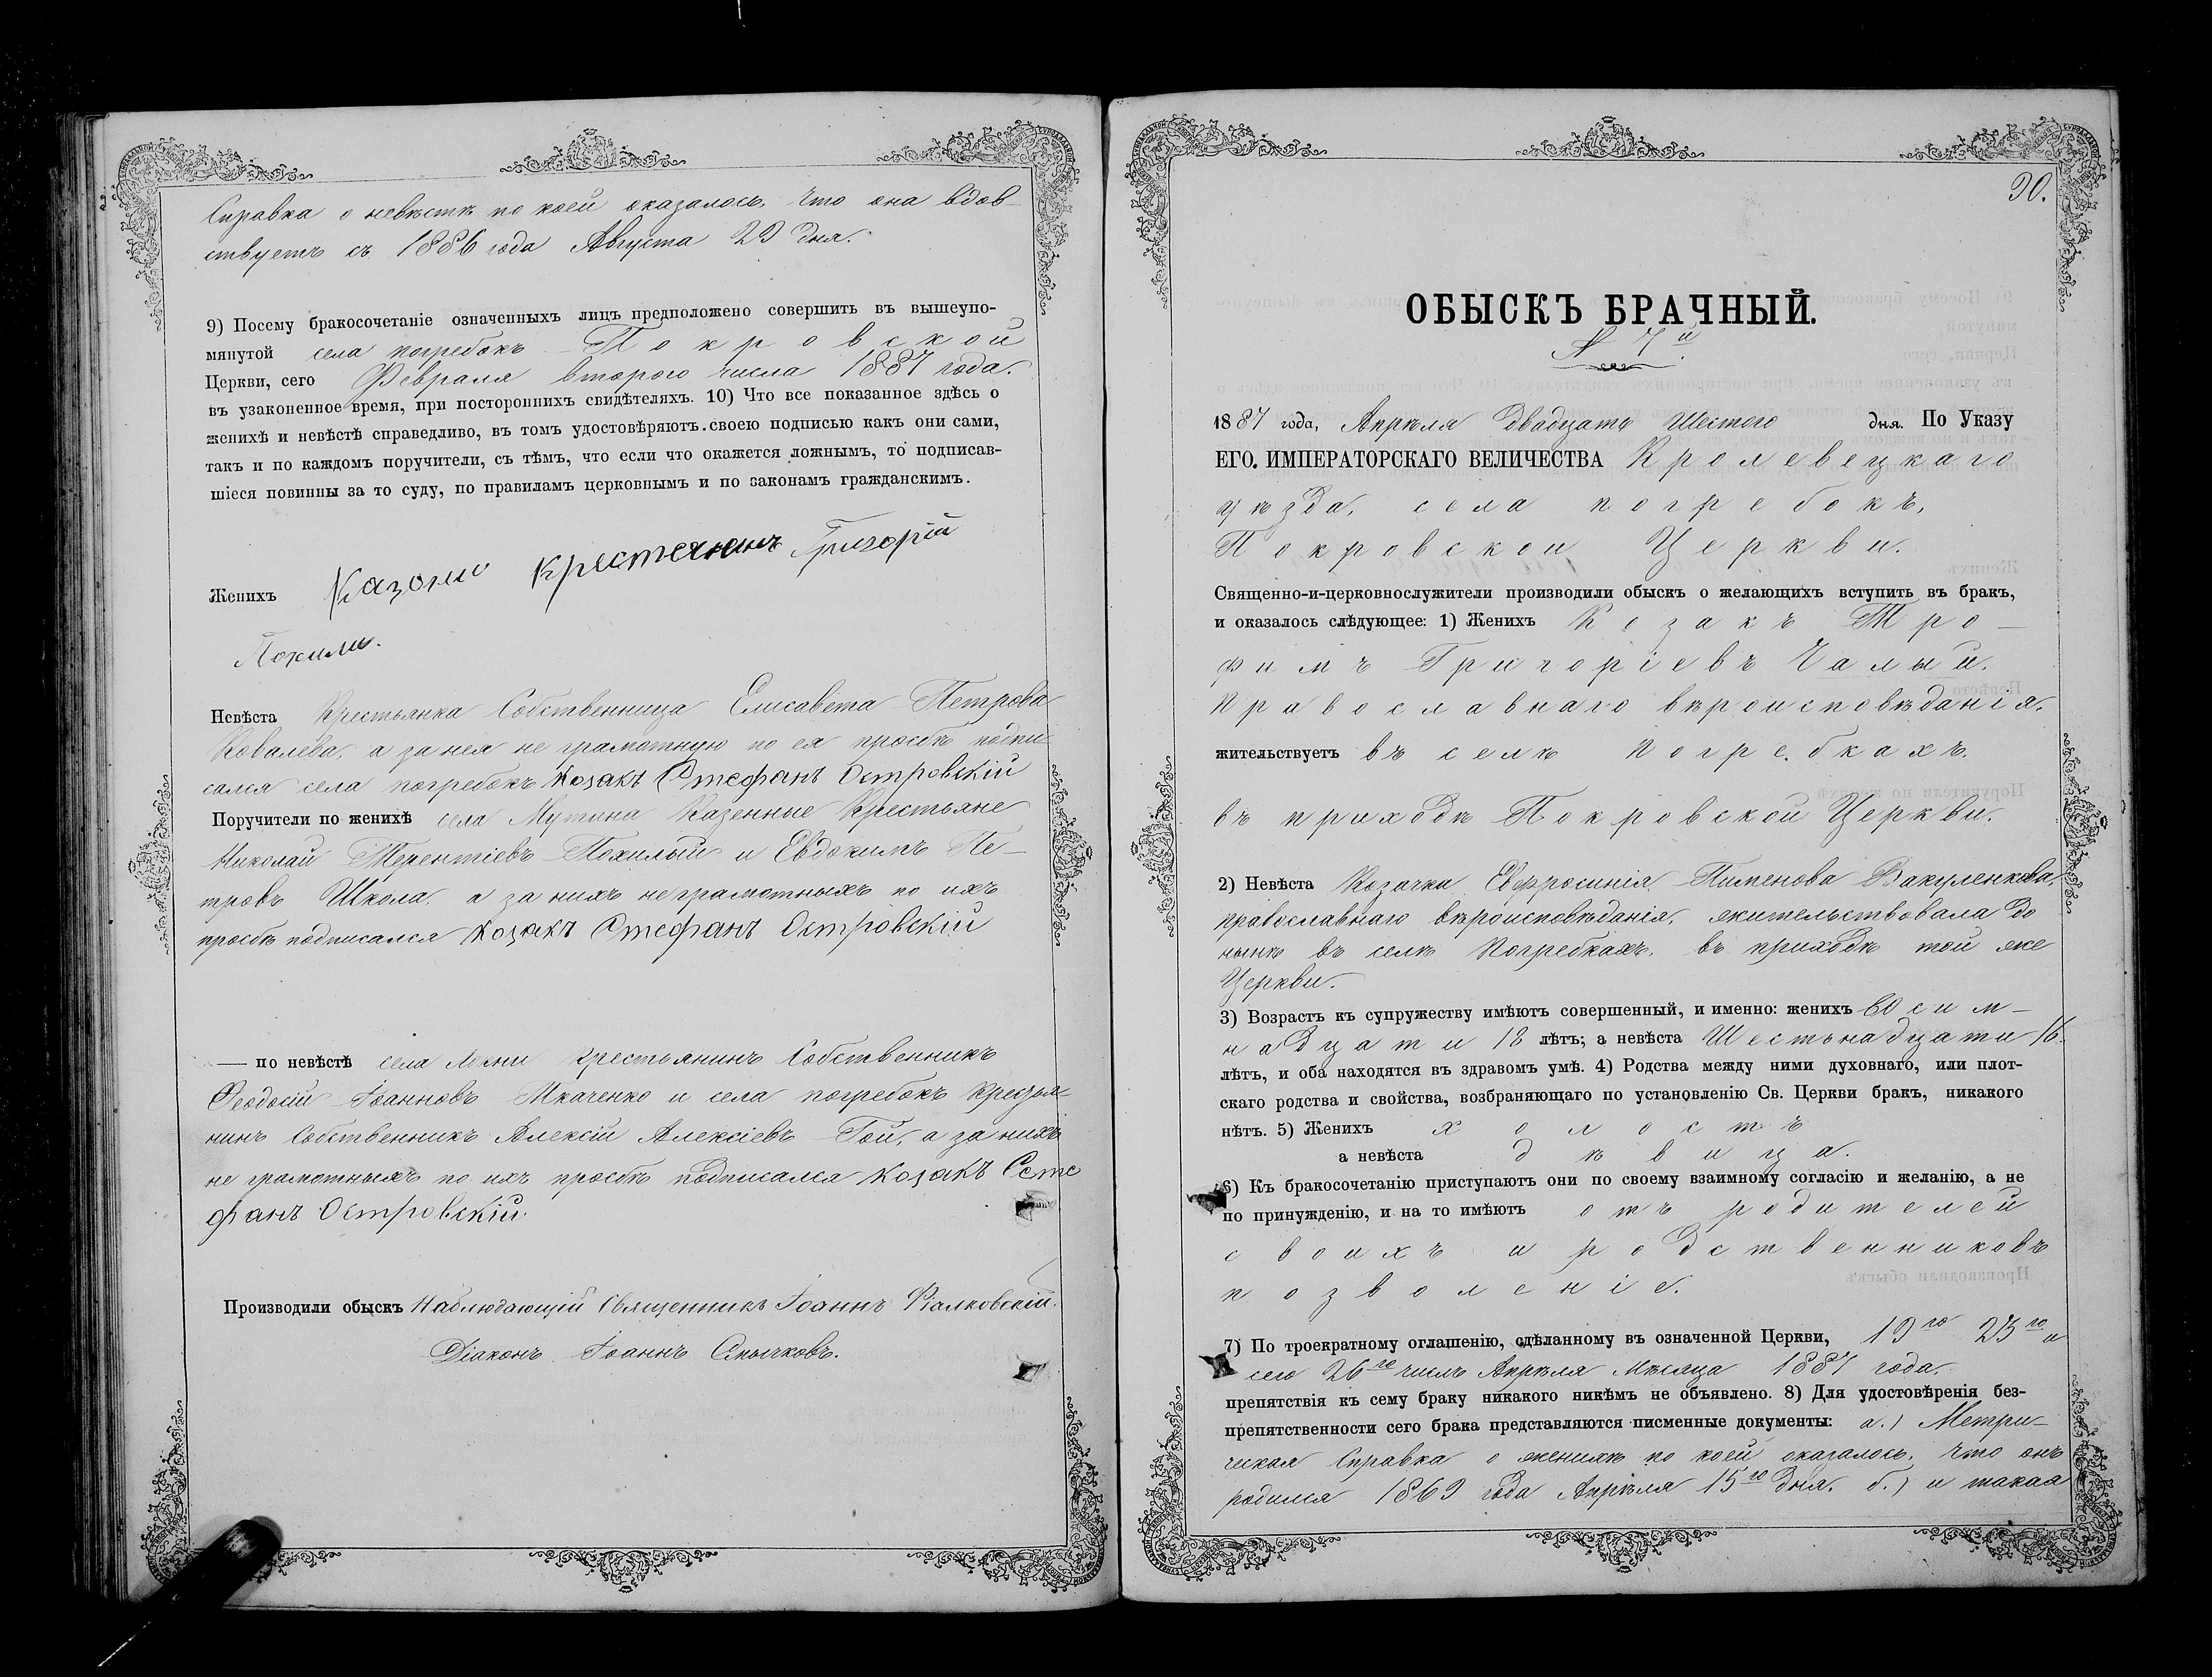 Справка о невѣстѣ по коей оказалось. Что она вдов-
ствуетъ съ 1886 года Августа 29 дня.
9) Посему бракосочетаніе означенныхъ лицъ предположено совершить въ вышеупо-
мянутой села погребокъ Покровской
Церкви, сего Февраля второго числа 1887 года.
въ узаконенное время, при постороннихъ свидѣтеляхъ. 10) Что все показанное здѣсь о
женихѣ и невѣстѣ справедливо, въ томъ удостовѣряютъ своею подписью какъ они сами,
такъ и по каждомъ поручители, съ тѣмъ, что если что окажется ложнымъ, то подписав-
шіеся повинны за то суду, по правиламъ церковнымъ и по законамъ гражданскимъ.
Женихъ крестенинъ Григорій
Невѣста Крестьянка Собственница Елисавета Петрова
Ковалева, а за нея не грамотную по ея просьбѣ подпи-
сался села погребокъ козакъ Стефанъ Островскій
Поручители по женихѣ села Мутина Казенные Крестьяне
Николай Терентіевъ Похилый и Евдокимъ Пе-
тровъ Школа. а за нихъ неграмотныхъ по ихъ
просьбѣ подписался козакъ Стефанъ Островскій
— по невѣстѣ села крестьянинъ Собственникъ
Феодосій Іоанновъ Ткаченко и села погребокъ крестья-
нинъ Собственникъ Алексій Алексіевъ Гой, а за нихъ
не грамотныхъ по ихъ просьбѣ подписался козакъ Сте
фанъ Островскій
Производили обыскъ Наблюдающій Священникъ Іоаннъ Фіалковскій.
Діаконъ Іоаннъ
90.
ОБЫСКЪ БРАЧНЫЙ.
№ 7й
1887 года, Апрѣля двадцать Шестого дня. По Указу
ЕГО ИМПЕРАТОРСКАГО ВЕЛИЧЕСТВА Кролевецкаго
уѣзда, села погребокъ,
Покровской Церкви.
Священно-и-церковнослужители производили обыскъ о желающихъ вступить въ бракъ,
и оказалось слѣдующее: 1) Женихъ Козакъ Тро-
фимъ Григоріевъ Чалый,
Православнаго вѣроисповѣданія.
жительствуетъ въ селѣ Погребкахъ.
въ приходѣ Покровской Церкви.
2) Невѣста Козачка Евфросинія Пименова Вакуленкова,
православнаго вѣроисповѣданія, жительствовала до
нынѣ въ селѣ Погребкахъ, въ приходѣ той же
Церкви.
3) Возрастъ къ супружеству имѣютъ совершенный, и именно: женихъ восим-
надцати 18 лѣтъ; а невѣста Шестьнадцати 16.
лѣтъ, и оба находятся въ здравомъ умѣ. 4) Родства между ними духовнаго, или плот-
скаго родства и свойства, возбраняющаго по установленію Св. Церкви бракъ, никакого
нѣтъ. 5) Женихъ холостъ
а невѣста дѣвица.
6) Къ бракосочетанію приступаютъ они по своему взаимному согласію и желанію, а не
по принужденію, и на то имѣютъ отъ родителей
своихъ и родственниковъ
позволеніе.
7) По троекратному оглашенію, сдѣланному въ означенной Церкви, 19го 25го и
сего 26го числъ Апрѣля Мѣсяца 1887 года.
препятствія къ сему браку никакого никѣмъ не объявлено. 8) Для удостовѣренія без-
препятственности сего брака представляются писменные документы: а.) Метри-
ческая Справка о женихѣ по коей оказалось. Что онъ
родился 1869 года Апрѣля 15го дня. б.) и такая